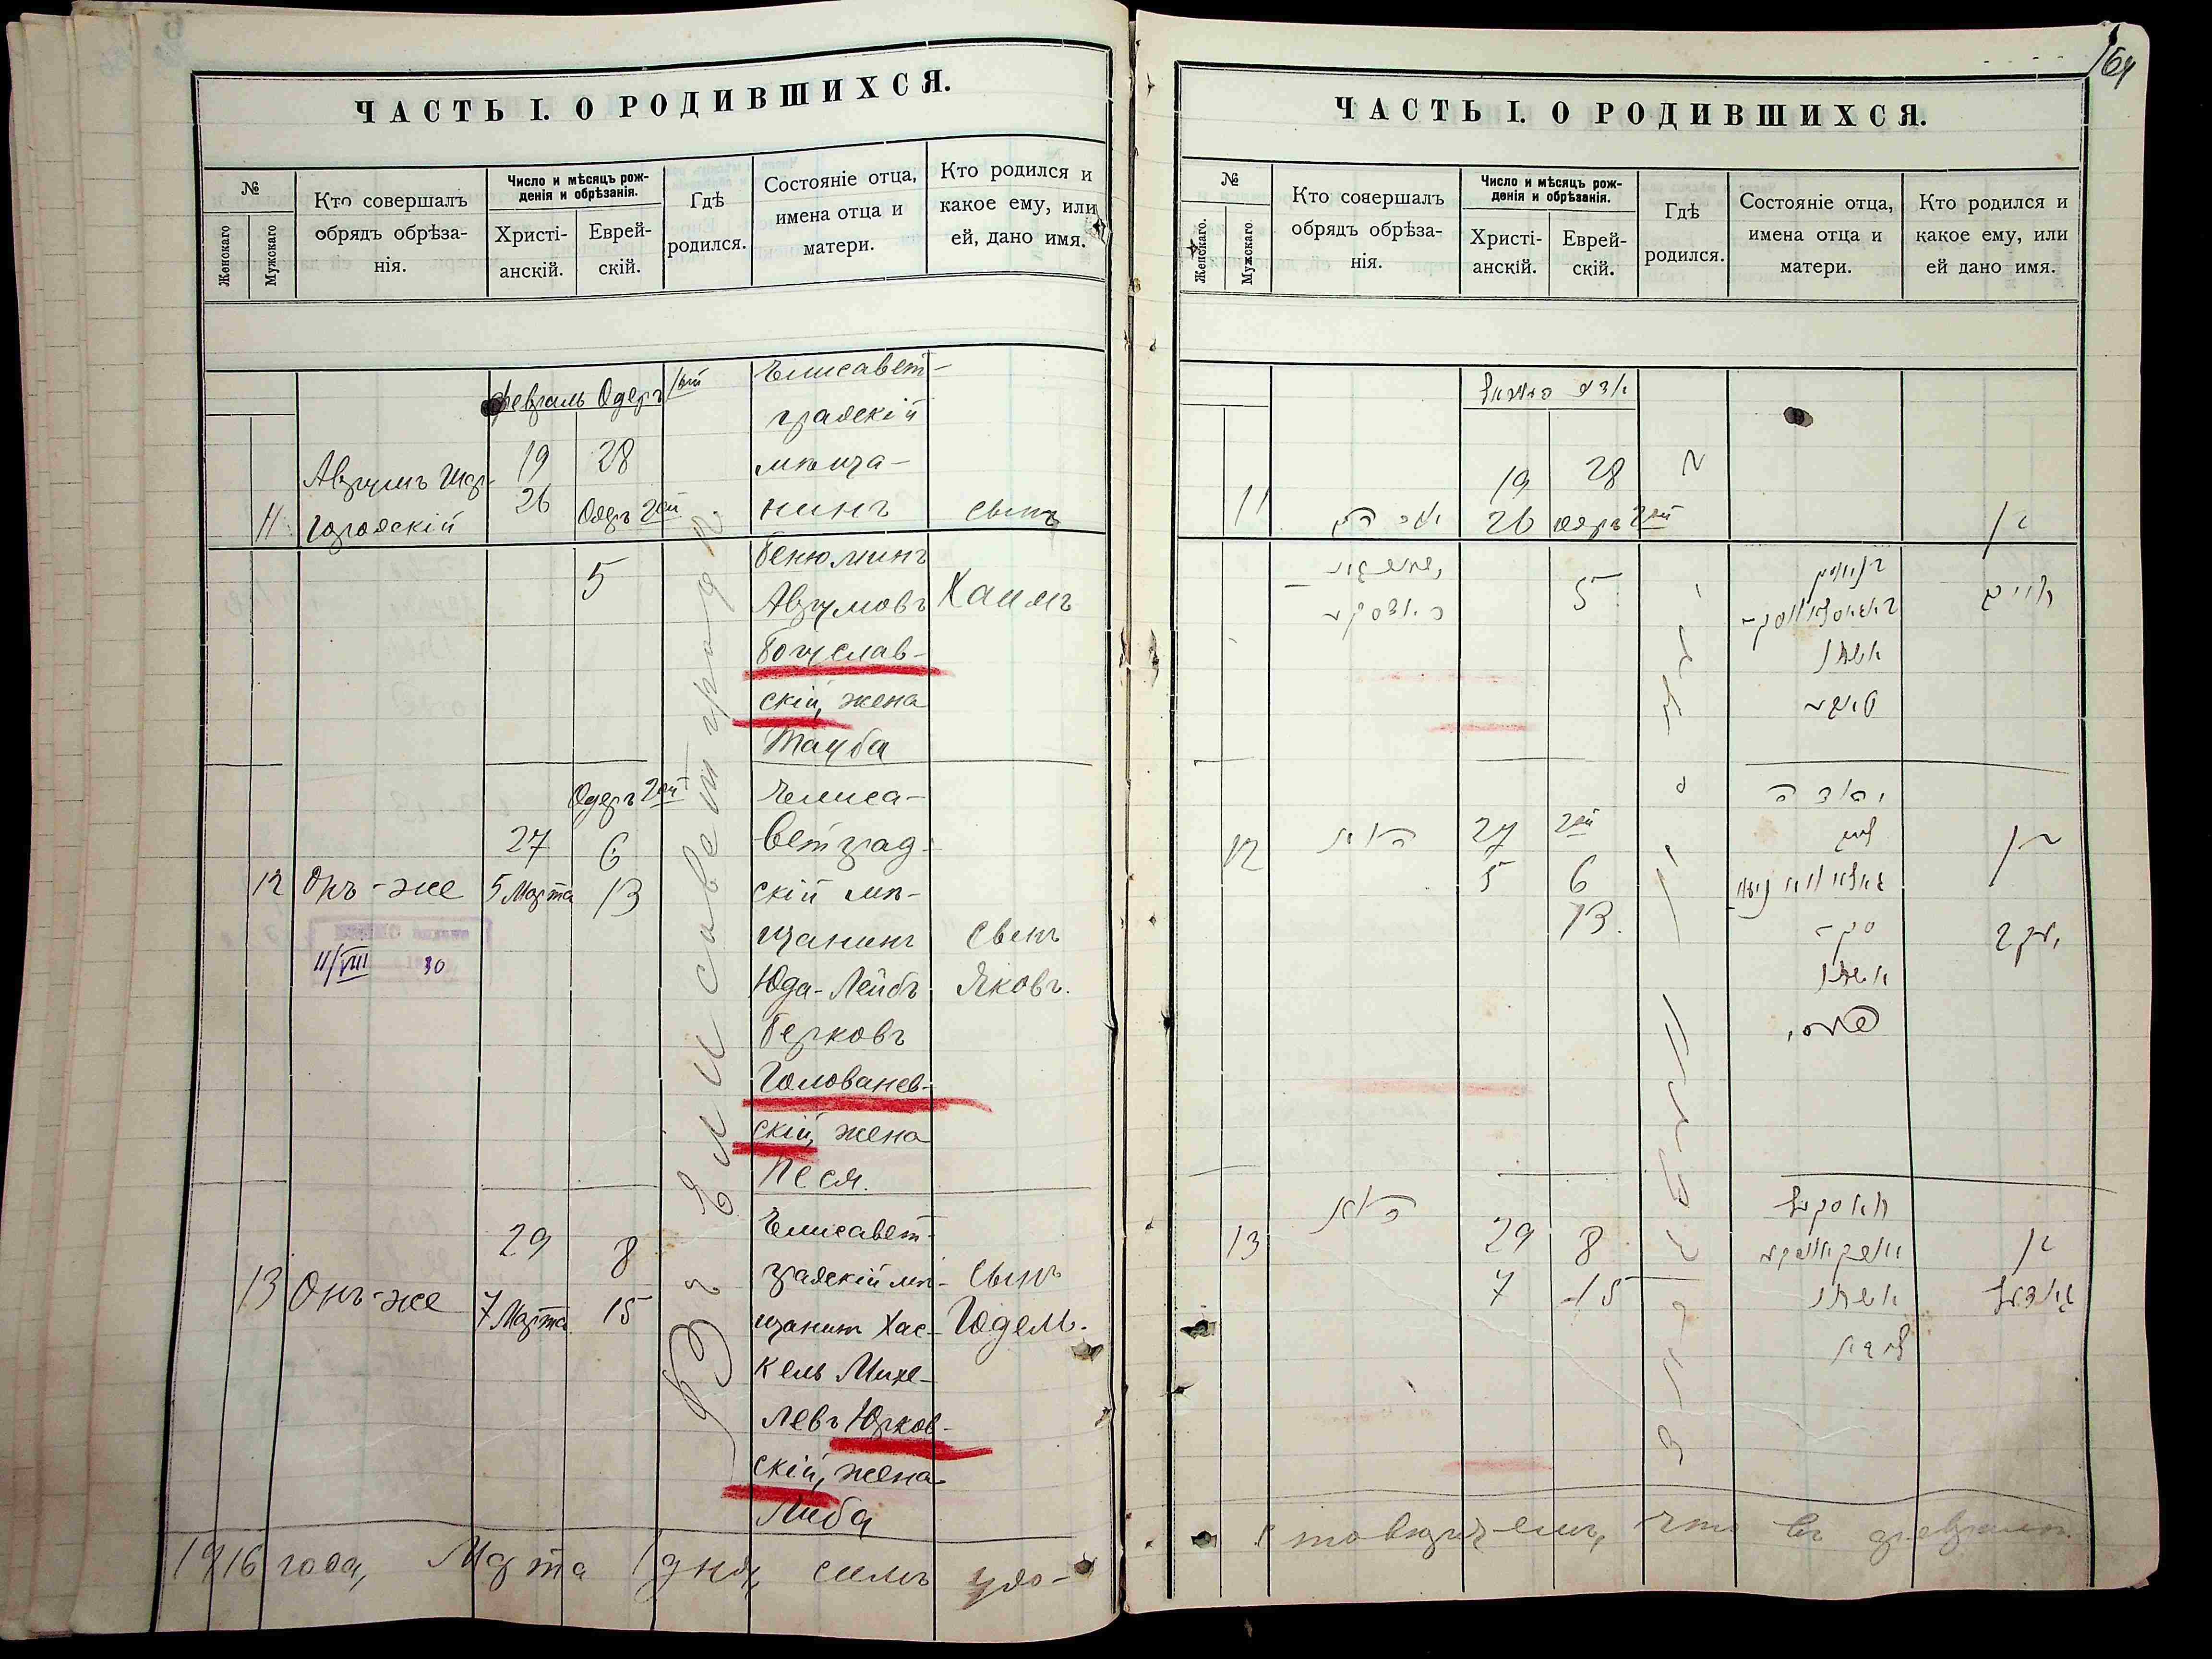 ЧАСТЬ I. О РОДИВШИХСЯ.
№
Женскаго
Мужскаго
Кто совершалъ
обрядъ обрѣза-
нія.
Число и мѣсяцъ рож-
денія и обрѣзанія.
Христі-
анскій.
Еврей-
скій.
Гдѣ
родился.
Состояніе отца,
имена отца и
матери.
Кто родился и
какое ему, или
ей, дано имя.
11
Аврумъ Шар-
городскій
февраль
19
26
Одеръ 1ый
28
Одеръ 2ой
5
Въ г Елисаветградѣ.
Елисавет-
градскій
мѣща-
нинъ
Бенюминъ
Аврумовъ
Богуслав-
скій, жена
Тауба
сынъ
Хаимъ
12
Онъ-же
27
5 Марта
Одеръ 2ой
6
13
Елиса-
ветград-
скій мѣ-
щанинъ
Юда-Лейбъ
Берковъ
Голованев-
скій, жена
Песя.
сынъ
Яковъ.
11/VIII 30
13
Онъ-же
29
7 Марта
8
15
Елисавет-
градскій мѣ-
щанинъ Хас-
кель Михе-
левъ Юрков-
скій, жена
Либа
сынъ
Годель.
1916 года, Марта 1 дня, симъ удо-
64
ЧАСТЬ I. О РОДИВШИХСЯ.
№
Женскаго.
Мужскаго
Кто совершалъ
обрядъ обрѣза-
нія.
Число и мѣсяцъ рож-
денія и обрѣзанія.
Христі-
анскій.
Еврей-
скій.
Гдѣ
родился.
Состояніе отца,
имена отца и
матери.
Кто родился и
какое ему, или
ей дано имя.
11
19
26
28
Одеръ 2ой
5
בנימין
אשתו
טויבע
בן
חיים
12
הוא
27
5
2ой
6
13
יהודה
ליב
אשתו
פעסי
בן
יעקב
13
הוא
29
7
8
15
חאסקעל
אשתו
ליבא
בן
גאדעל
стовѣряемъ, что въ февралѣ